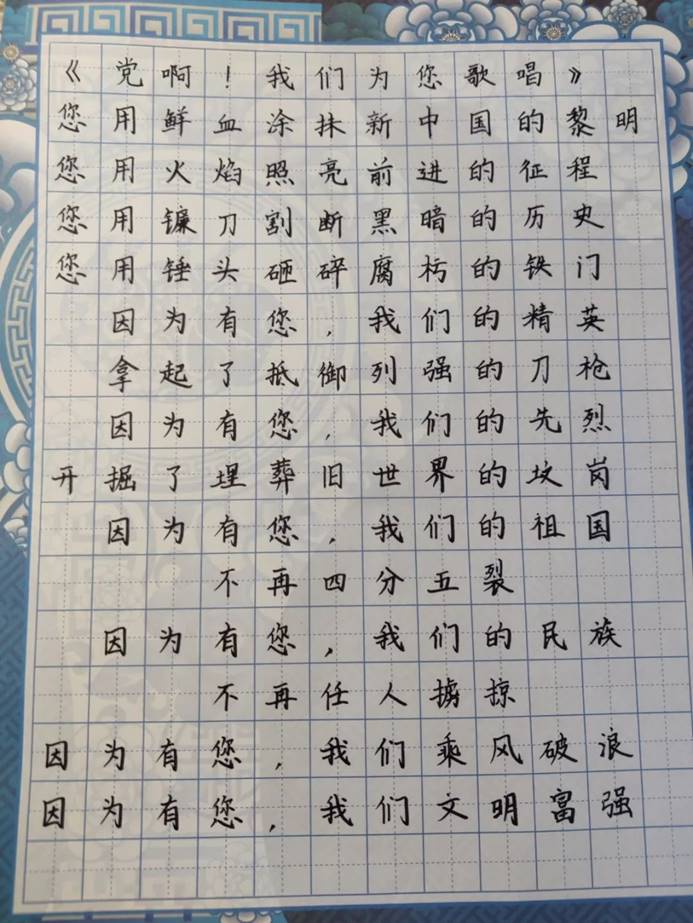 《党啊!我们为您歌唱》
您用鲜血涂抹新中国的黎明
您用火焰照亮前进的征程
您用镰刀割断黑暗的历史
您用锤头砸碎腐朽的铁门
因为有您,我们的精英
拿起了抵御列强的刀枪
因为有您,我们的先烈
开掘了埋葬旧世界的坟岗
因为有您,我们的祖国
不再四分五裂
因为有您,我们的民族
不再任人掳掠
因为有您,我们乘风破浪
因为有您,我们文明富强